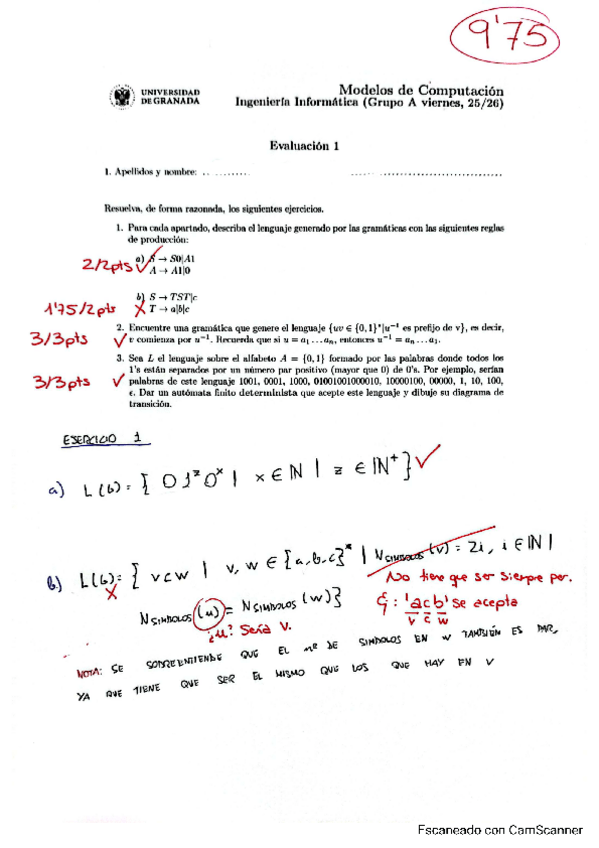 9'75
UNIVERSIDAD
DE GRANADA
Modelos de Computación
Ingeniería Informática (Grupo A viernes, 25/26)
Evaluación 1
1. Apellidos y nombre:
Resuelva, de forma razonada, los siguientes ejercicios.
1. Para cada apartado, describa el lenguaje generado por las gramáticas con las siguientes reglas
de producción:
2/2pts
a) S → S0|A1
A → A1|0
1'75/2pts
b) S → TST|c
T → a|b|c
3/3pts
2. Encuentre una gramática que genere el lenguaje {uv ∈ {0,1}*|u⁻¹ es prefijo de v}, es decir,
v comienza por u⁻¹. Recuerda que si u = a₁...aₙ, entonces u⁻¹ = aₙ...a₁.
3/3pts
3. Sea L el lenguaje sobre el alfabeto A = {0,1} formado por las palabras donde todos los
1's están separados por un número par positivo (mayor que 0) de 0's. Por ejemplo, serían
palabras de este lenguaje 1001, 0001, 1000, 01001001000010, 10000100, 00000, 1, 10, 100,
ϵ. Dar un autómata finito determinista que acepte este lenguaje y dibuje su diagrama de
transición.
EJERCICIO 1
a) L(G) = { 0 1ᶻ 0ˣ | x ∈ ℕ | z ∈ ℕ⁺ }
b) L(G) = { v c w | v, w ∈ {a,b,c}* | N SIMBOLOS (v) = 2i, i ∈ ℕ |
No tiene que ser siempre par.
N SIMBOLOS (u) = N SIMBOLOS (w) }
Ej: 'acb' se acepta
v c w
¿u? Sería v.
NOTA: SE SOBREENTIENDE QUE EL nº DE SIMBOLOS EN W TAMBIÉN ES PAR,
YA QUE TIENE QUE SER EL MISMO QUE LOS QUE HAY EN V
Escaneado con CamScanner